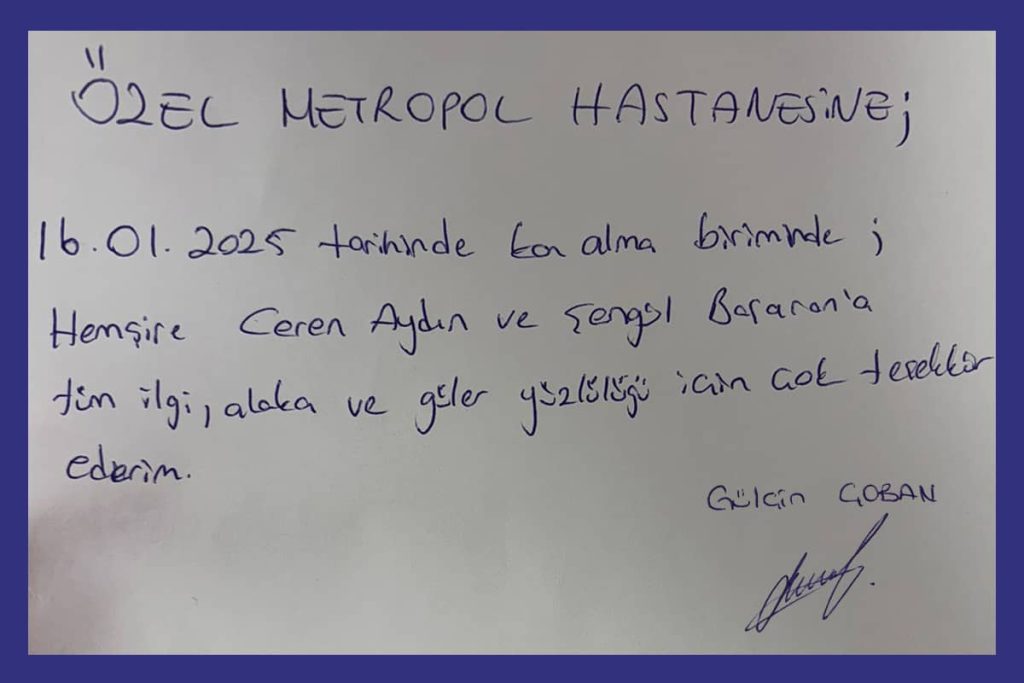 ÖZEL METROPOL HASTANESİNE;
16.01.2025 tarihinde kan alma biriminde ;
Hemşire Ceren Aydın ve Şengül Başaran'a
tüm ilgi, alaka ve güler yüzlülüğü için çok teşekkür
ederim.
Gülçin ÇOBAN